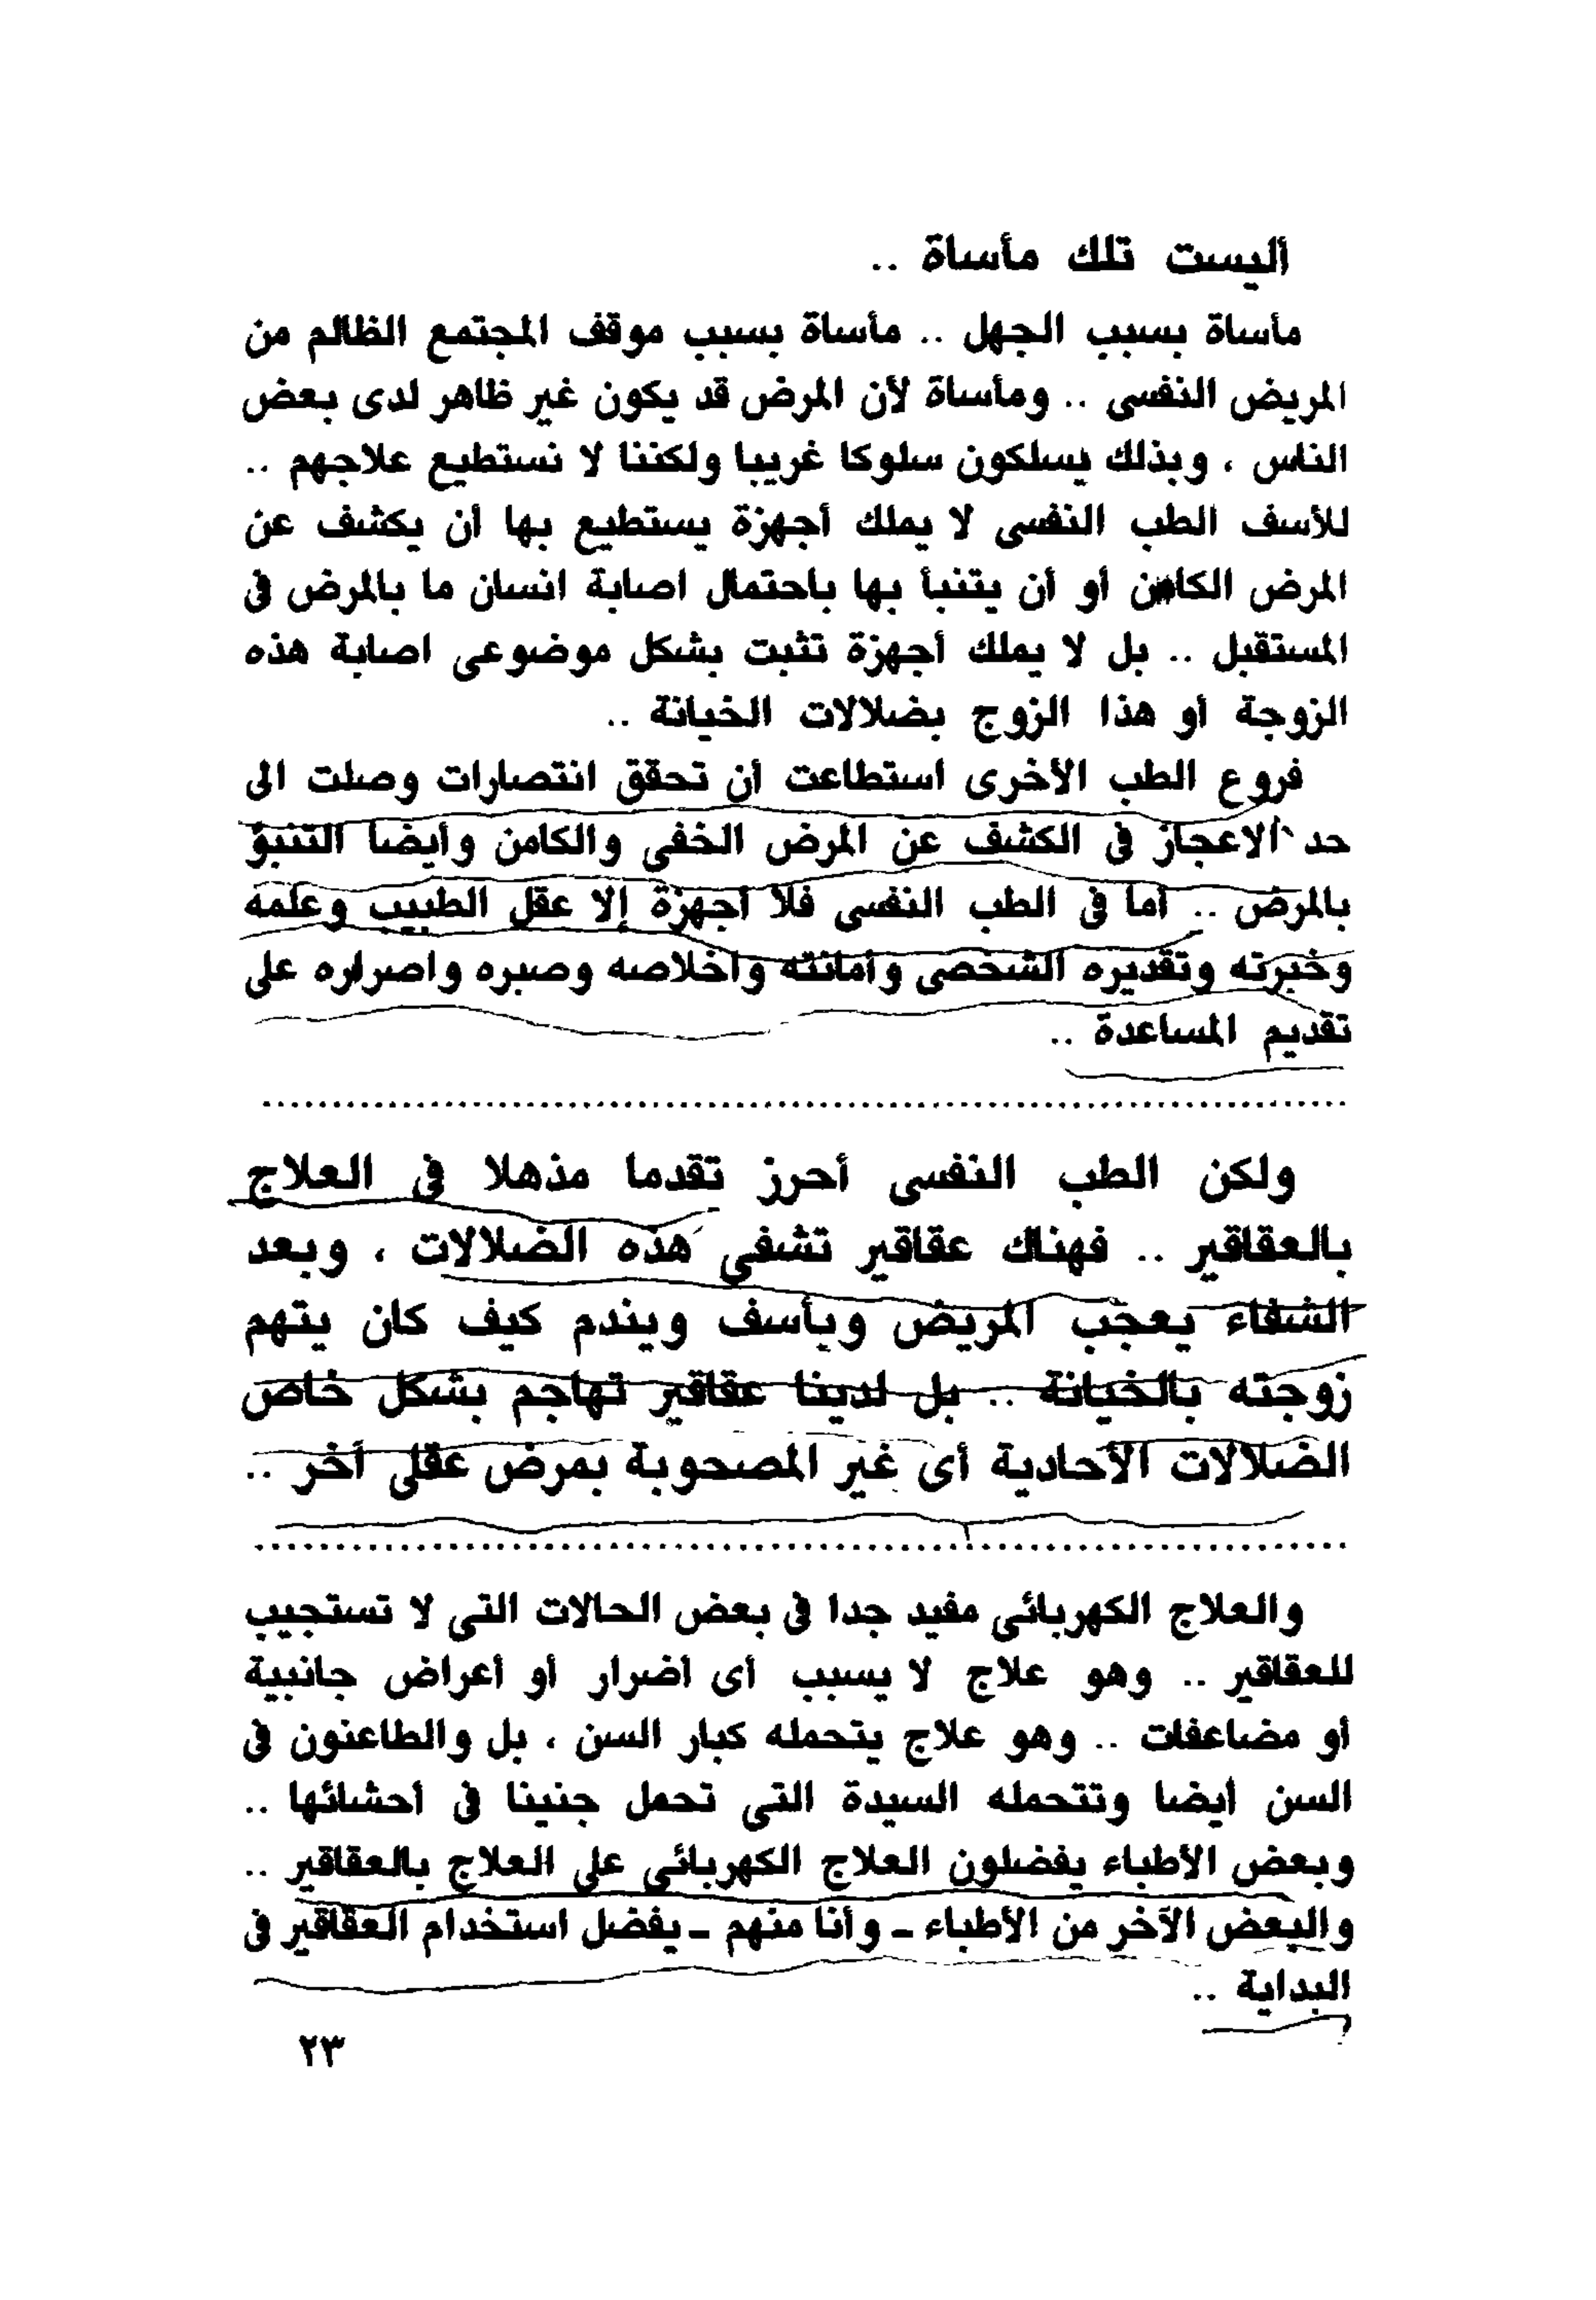 أليست تلك مأساة ..
مأساة بسبب الجهل .. مأساة بسبب موقف المجتمع الظالم من
المريض النفسى .. ومأساة لأن المرض قد يكون غير ظاهر لدى بعض
الناس ، وبذلك يسلكون سلوكا غريبا ولكننا لا نستطيع علاجهم ..
للأسف الطب النفسى لا يملك أجهزة يستطيع بها أن يكشف عن
المرض الكامن أو أن يتنبأ بها باحتمال اصابة انسان ما بالمرض فى
المستقبل .. بل لا يملك أجهزة تثبت بشكل موضوعى اصابة هذه
الزوجة أو هذا الزوج بضلالات الخيانة ..
فروع الطب الأخرى استطاعت أن تحقق انتصارات وصلت الى
حد الاعجاز فى الكشف عن المرض الخفى والكامن وأيضا التنبؤ
بالمرض .. أما فى الطب النفسى فلا أجهزة إلا عقل الطبيب وعلمه
وخبرته وتقديره الشخصى وأمانته واخلاصه وصبره واصراره على
تقديم المساعدة ..
ولكن الطب النفسى أحرز تقدما مذهلا فى العلاج
بالعقاقير .. فهناك عقاقير تشفى هذه الضلالات ، وبعد
الشفاء يعجب المريض ويأسف ويندم كيف كان يتهم
زوجته بالخيانة .. بل لدينا عقاقير تهاجم بشكل خاص
الضلالات الأحادية أى غير المصحوبة بمرض عقلى أخر ..
والعلاج الكهربائى مفيد جدا فى بعض الحالات التى لا تستجيب
للعقاقير .. وهو علاج لا يسبب أى أضرار أو أعراض جانبية
أو مضاعفات .. وهو علاج يتحمله كبار السن ، بل والطاعنون فى
السن أيضا وتتحمله السيدة التى تحمل جنينا فى أحشائها ..
وبعض الأطباء يفضلون العلاج الكهربائى على العلاج بالعقاقير ..
والبعض الآخر من الأطباء - وأنا منهم - يفضل استخدام العقاقير فى
البداية ..
٢٣